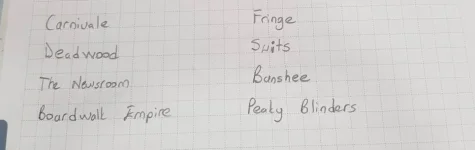 Carnivale
Deadwood
The Newsroom
Boardwalk Empire
Fringe
Suits
Banshee
Peaky Blinders